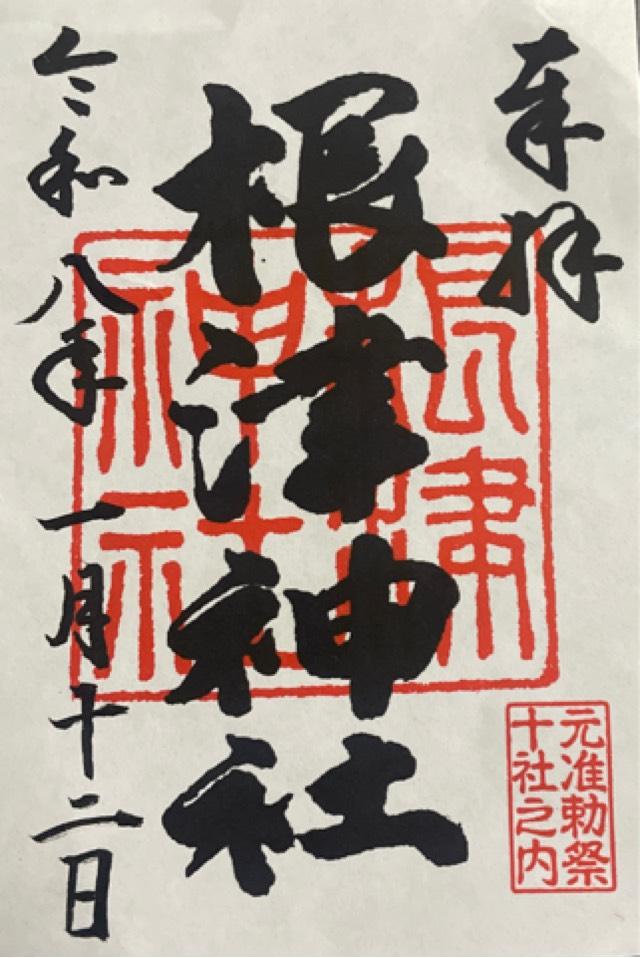 奉拝
根津神社
根津神社
元准勅祭
十社之内
令和八年一月十二日